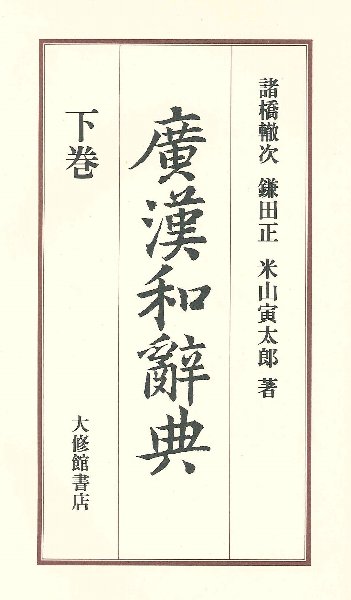 諸橋轍次 鎌田正 米山寅太郎 著
廣漢和辭典
下巻
大修館書店